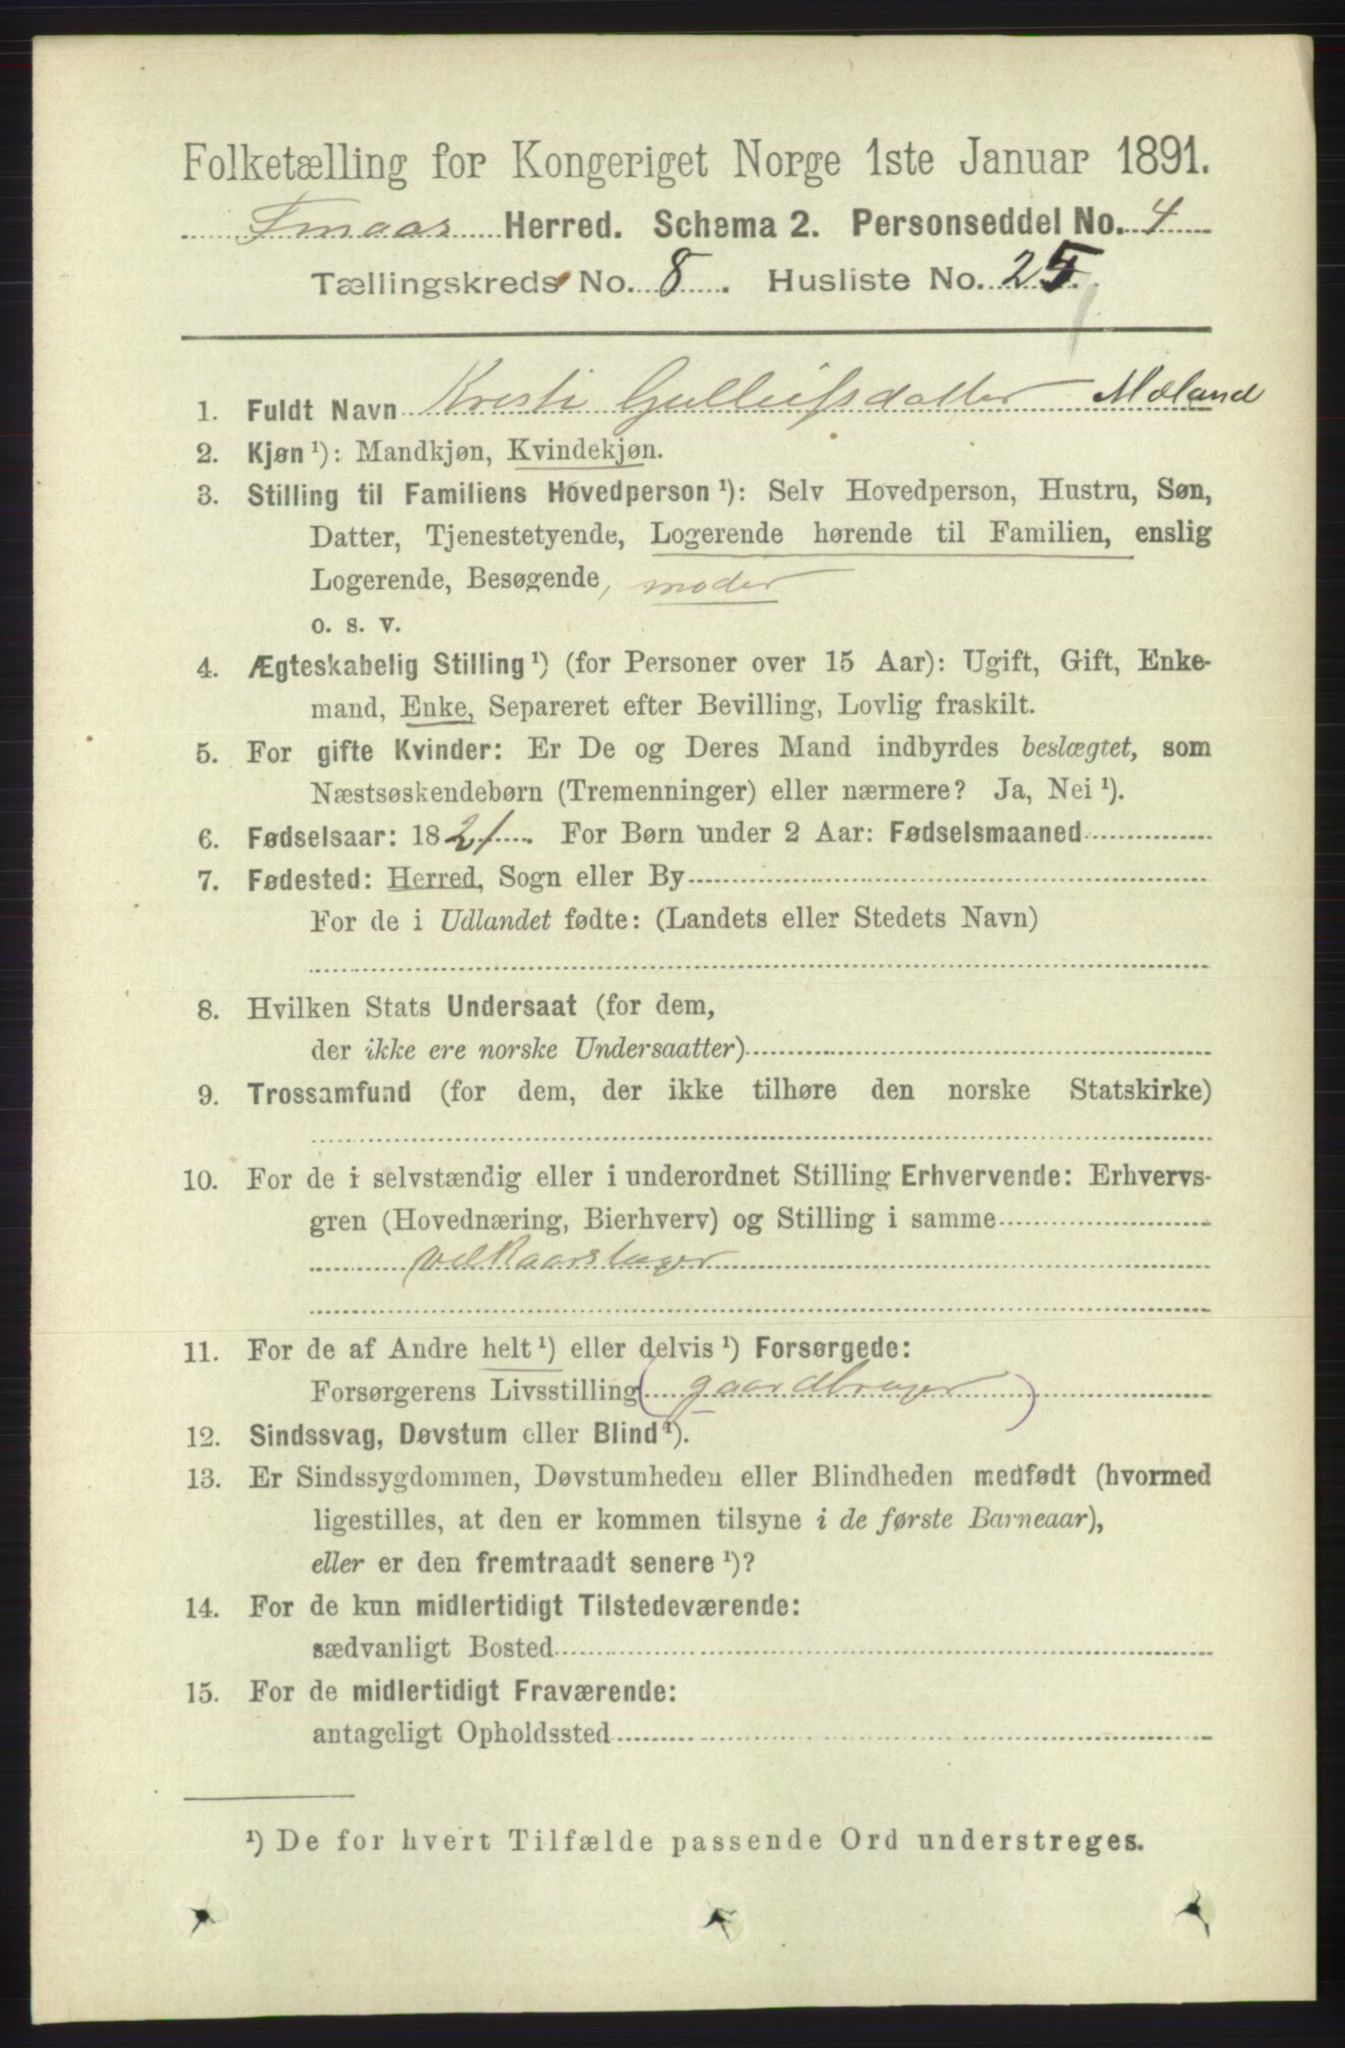 Folketælling for Kongeriget Norge 1ste Januar 1891.
Herred. Schema 2. Personseddel No. 4
Tællingskreds No. 8. Husliste No. 25.
1. Fuldt Navn Kristi Gulleifsdatter Mæland
2. Kjøn ¹): Mandkjøn, Kvindekjøn.
3. Stilling til Familiens Hovedperson ¹): Selv Hovedperson, Hustru, Søn,
Datter, Tjenestetyende, Logerende hørende til Familien, enslig
Logerende, Besøgende, moder
o. s. v.
4. Ægteskabelig Stilling ¹) (for Personer over 15 Aar): Ugift, Gift, Enke-
mand, Enke, Separeret efter Bevilling, Lovlig fraskilt.
5. For gifte Kvinder: Er De og Deres Mand indbyrdes beslægtet, som
Næstsøskendebørn (Tremenninger) eller nærmere? Ja, Nei ¹).
6. Fødselsaar: 1821. For Børn under 2 Aar: Fødselsmaaned
7. Fødested: Herred, Sogn eller By
For de i Udlandet fødte: (Landets eller Stedets Navn)
8. Hvilken Stats Undersaat (for dem,
der ikke ere norske Undersaatter)
9. Trossamfund (for dem, der ikke tilhøre den norske Statskirke)
10. For de i selvstændig eller i underordnet Stilling Erhvervende: Erhvervs-
gren (Hovednæring, Bierhverv) og Stilling i samme
velkaarstager
11. For de af Andre helt ¹) eller delvis ¹) Forsørgede:
Forsørgerens Livsstilling (gaardbruger)
12. Sindssvag, Døvstum eller Blind ¹).
13. Er Sindssygdommen, Døvstumheden eller Blindheden medfødt (hvormed
ligestilles, at den er kommen tilsyne i de første Barneaar),
eller er den fremtraadt senere ¹)?
14. For de kun midlertidigt Tilstedeværende:
sædvanligt Bosted
15. For de midlertidigt Fraværende:
antageligt Opholdssted
¹) De for hvert Tilfælde passende Ord understreges.